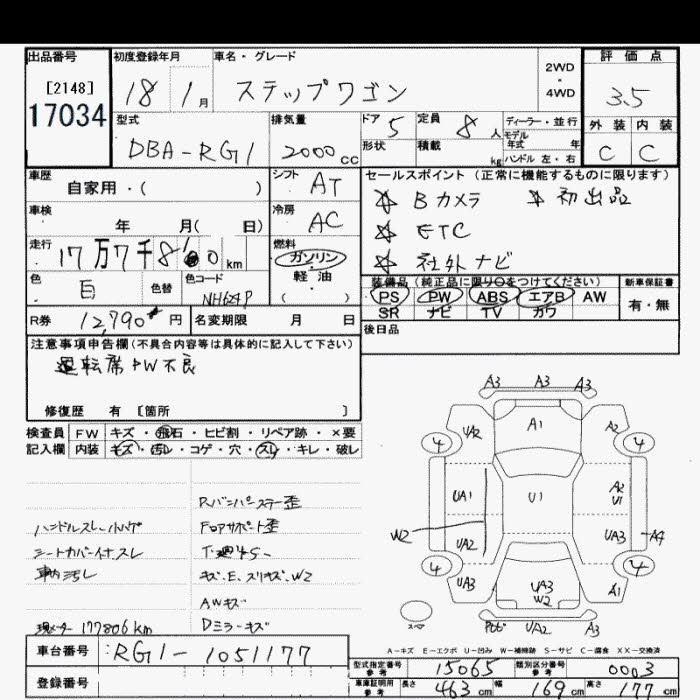 出品番号
[2148]
17034
初度登録年月
18 1月
車名・グレード
ステップワゴン
2WD
・
4WD
評価点
3.5
外装 内装
C C
型式
DBA-RG1
排気量
2000 cc
ドア 5
形状
定員 8人
積載 kg
ディーラー・並行
モデル
年式 年
ハンドル 左・右
車歴
自家用・( )
シフト AT
セールスポイント (正常に機能するものに限ります)
Bカメラ 初出品
ETC
社外ナビ
車検
年 月( 日)
冷房 AC
走行
17万7千8 0 km
燃料
ガソリン
・
軽油
( )
色 白
色替
色コード
NH624P
装備品(純正品に限り○をつけてください)
PS PW ABS エアB AW
SR ナビ TV カワ
新車保証書
有・無
R券 12,790 円
名変期限 月 日
後日品
注意事項申告欄(不具合内容等は具体的に記入して下さい)
運転席PW不良
修復歴 有 [箇所 ]
検査員 FW キズ・飛石・ヒビ割・リペア跡・×要
記入欄 内装 キズ・汚レ・コゲ・穴・スレ・キレ・破レ
Rバンパーステー歪
ハンドルスレ
Fロアサポート歪
シートカバー付スレ
車内汚レ
キズ、E、スリキズ、W2
AWキズ
現メーター177806km
Dミラーキズ
A3 A3 A3
UA2 A1 A2
4 4
UA1 U1 A2
U1
W2 UA2 UA3 A4
4 4
UA3 UA3 A1
W2
UA2 A3
スペア
A-キズ E-エクボ U-凹み W-補修跡 S-サビ C-腐食 XX-交換済
車台番号 :RG1-1051177
登録番号
型式指定番号
参考
15065
類別区分番号
参考
0003
車庫証明用
参考
長さ 463 cm 幅 169 cm 高さ 177 cm